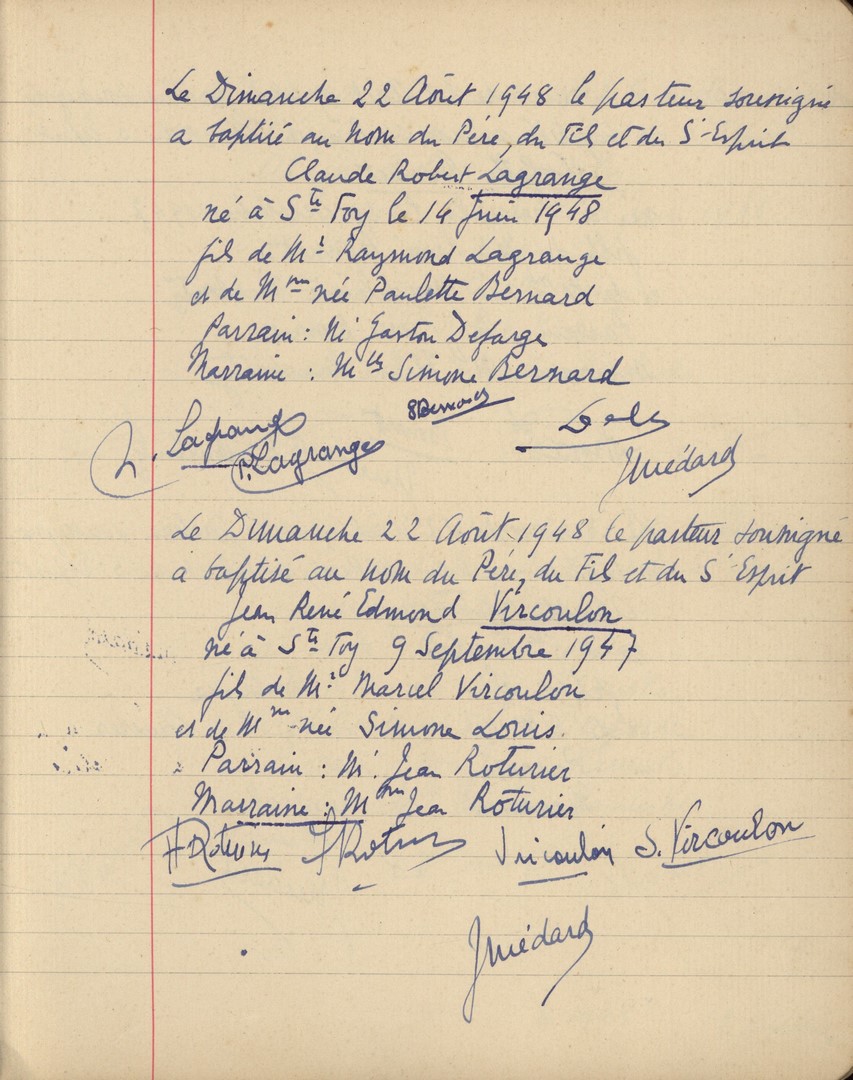 Le Dimanche 22 Août 1948 le pasteur soussigné
a baptisé au nom du Père, du Fils et du St-Esprit
Claude Robert Lagrange
né à Ste Foy le 14 Juin 1948
fils de Mr Raymond Lagrange
et de Mme née Paulette Bernard
Parrain : Mr Gaston Defarge
Marraine : Mlle Simone Bernard
Lagrange
P. Lagrange
JMédard
Le Dimanche 22 Août 1948 le pasteur soussigné
a baptisé au nom du Père, du Fils et du St Esprit
Jean René Edmond Vircoulon
né à Ste Foy 9 Septembre 1947
fils de Mr Marcel Vircoulon
et de Mme née Simone Louis.
Parrain : Mr Jean Roturier
Marraine : Mme Jean Roturier
Vircoulon S. Vircoulon
JMédard